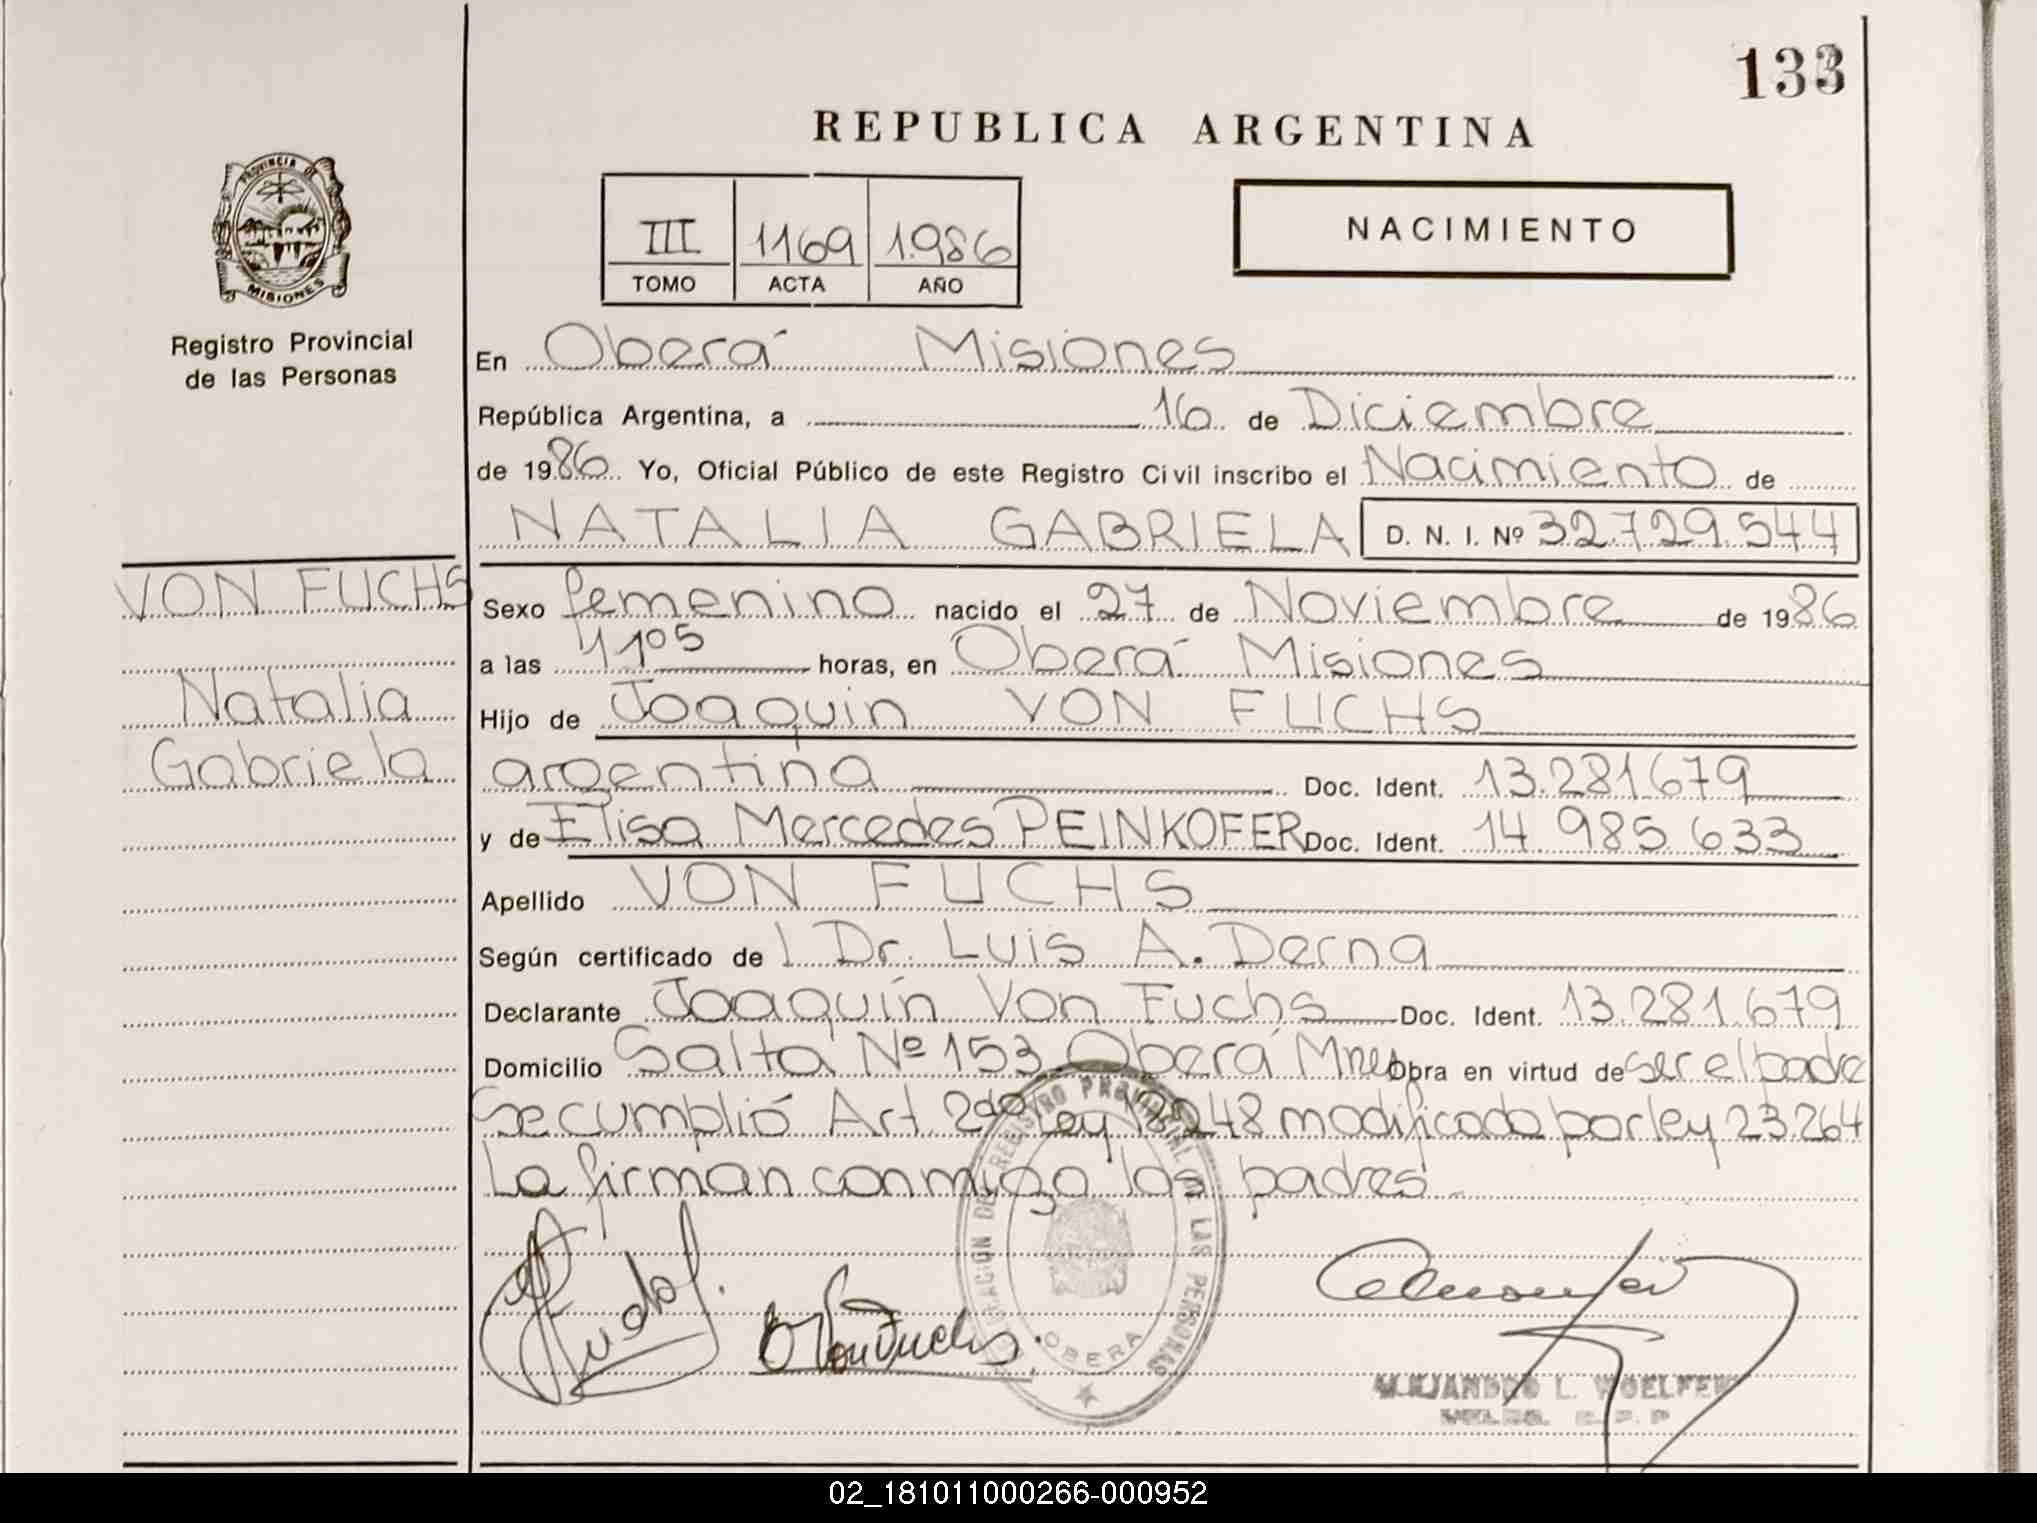 133
REPUBLICA ARGENTINA
PROVINCIA DE
MISIONES
Registro Provincial
de las Personas
III 1169 1.986
TOMO ACTA AÑO
NACIMIENTO
En Oberá Misiones
República Argentina, a 16 de Diciembre
de 1986 Yo, Oficial Público de este Registro Civil inscribo el Nacimiento de
NATALIA GABRIELA D. N. I. Nº 32.729.544
VON FUCHS
Natalia
Gabriela
Sexo femenino nacido el 27 de Noviembre de 1986
a las 11 05 horas, en Oberá Misiones
Hijo de Joaquin VON FUCHS
argentina Doc. Ident. 13.281679
y de Elisa Mercedes PEINKOFER Doc. Ident. 14.985.633
Apellido VON FUCHS
Según certificado de l Dr. Luis A. Derna
Declarante Joaquín Von Fuchs Doc. Ident. 13.281.679
Domicilio Salta Nº 153 Oberá Mnes Obra en virtud de ser el padre
Se cumplió Art 2do Ley 18248 modificado por ley 23.264
La firman conmigo los padres
DEL REGISTRO PROVINCIAL DE LAS PERSONAS
OBERA
Von Fuchs
ALEJANDRO L. WOELFERT
02_181011000266-000952